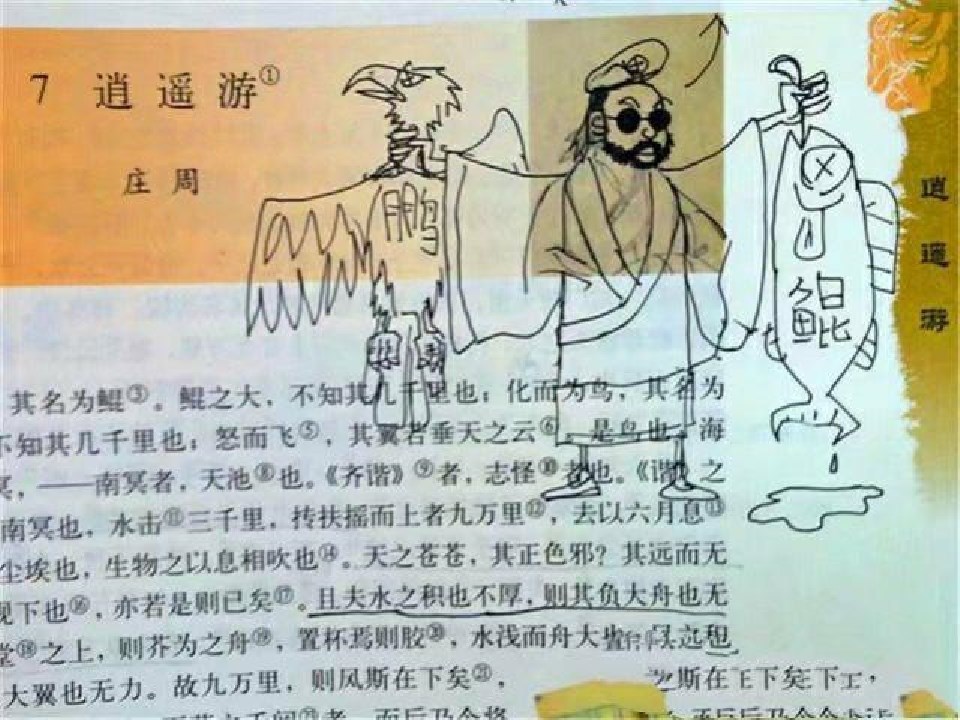 7 逍遥游①
庄周
鹏
鲲
逍遥游
其名为鲲③。鲲之大，不知其几千里也；化而为鸟，其名为
不知其几千里也；怒而飞⑤，其翼若垂天之云⑥。是鸟也，海
冥，——南冥者，天池⑧也。《齐谐》⑨者，志怪⑩者也。《谐》之
南冥也，水击⑪三千里，抟扶摇而上者九万里⑫，去以六月息⑬
尘埃也，生物之以息相吹也⑭。天之苍苍，其正色邪？其远而无
视下也⑯，亦若是则已矣⑰。且夫水之积也不厚，则其负大舟也无
堂⑱之上，则芥为之舟⑲，置杯焉则胶⑳，水浅而舟大也
大翼也无力。故九万里，则风斯在下矣㉑，
斯在下矣